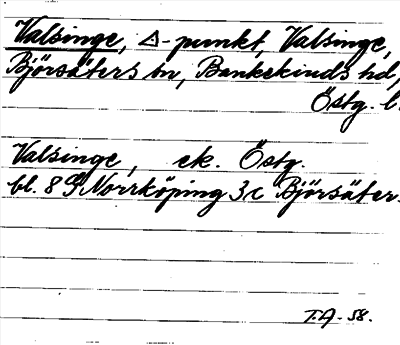 Valsinge, △-punkt, Valsinge,
Björsäters sn, Bankekinds hd,
Östg. l.
Valsinge, ek. Östg.
bl. 8 G Norrköping 3c Björsäter.
T.A. 58.